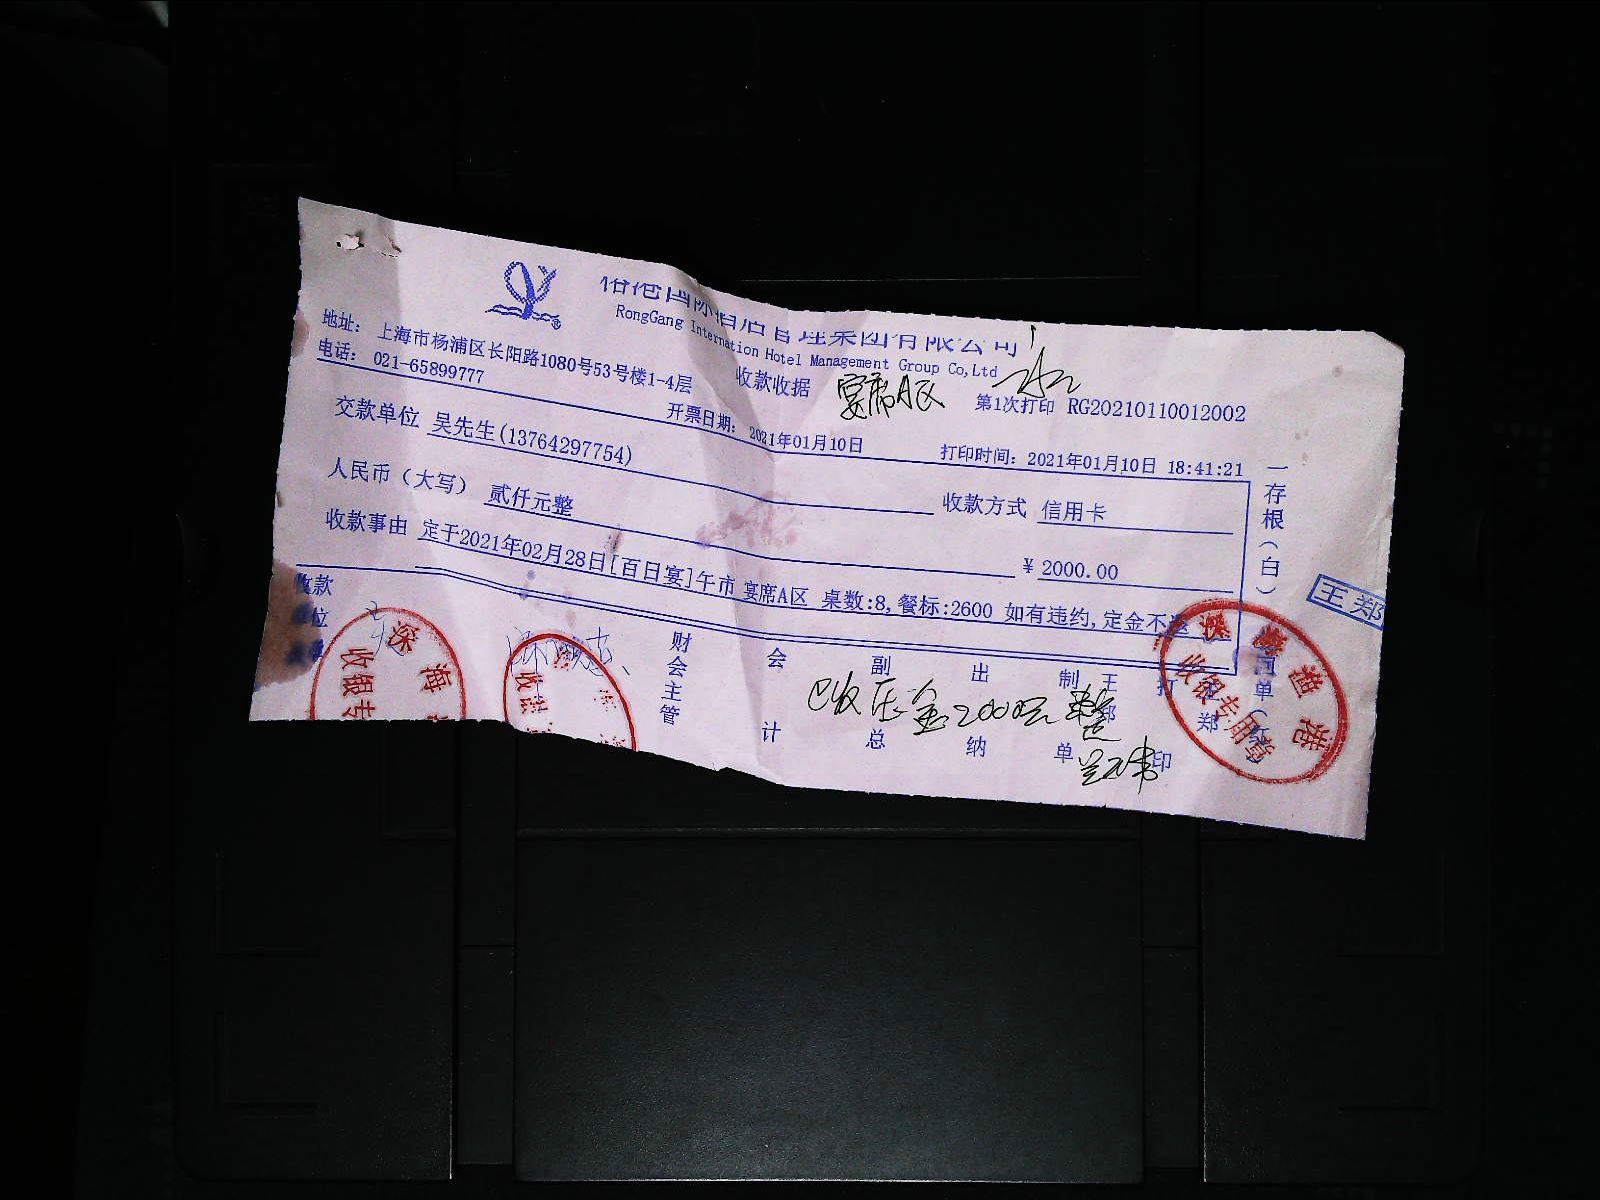 国际酒店管理集团有限公司
RongGang Internation Hotel Management Group Co,Ltd
地址： 上海市杨浦区长阳路1080号53号楼1-4层
电话： 021-65899777
收款收据 宴席A区
第1次打印 RG20210110012002
开票日期： 2021年01月10日
打印时间：2021年01月10日 18:41:21
交款单位 吴先生(13764297754)
收款方式 信用卡
人民币（大写） 贰仟元整
￥2000.00
收款事由 定于2021年02月28日[百日宴]午市 宴席A区 桌数:8,餐标:2600 如有违约,定金不退
一存根（白）
收款
财会主管
会计
副总
出纳
制单
王郑
打印
王郑
已收压金2000元整
深海
收银专
收银专用章
渔港